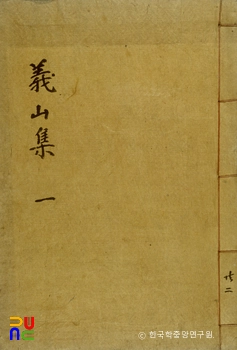 義山集 一
共二
ⓒ 한국학중앙연구원